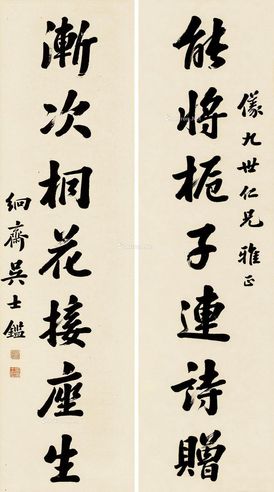 儀九世仁兄雅正
能將梔子連詩贈
漸次桐花接座生
絅齋吳士鑑